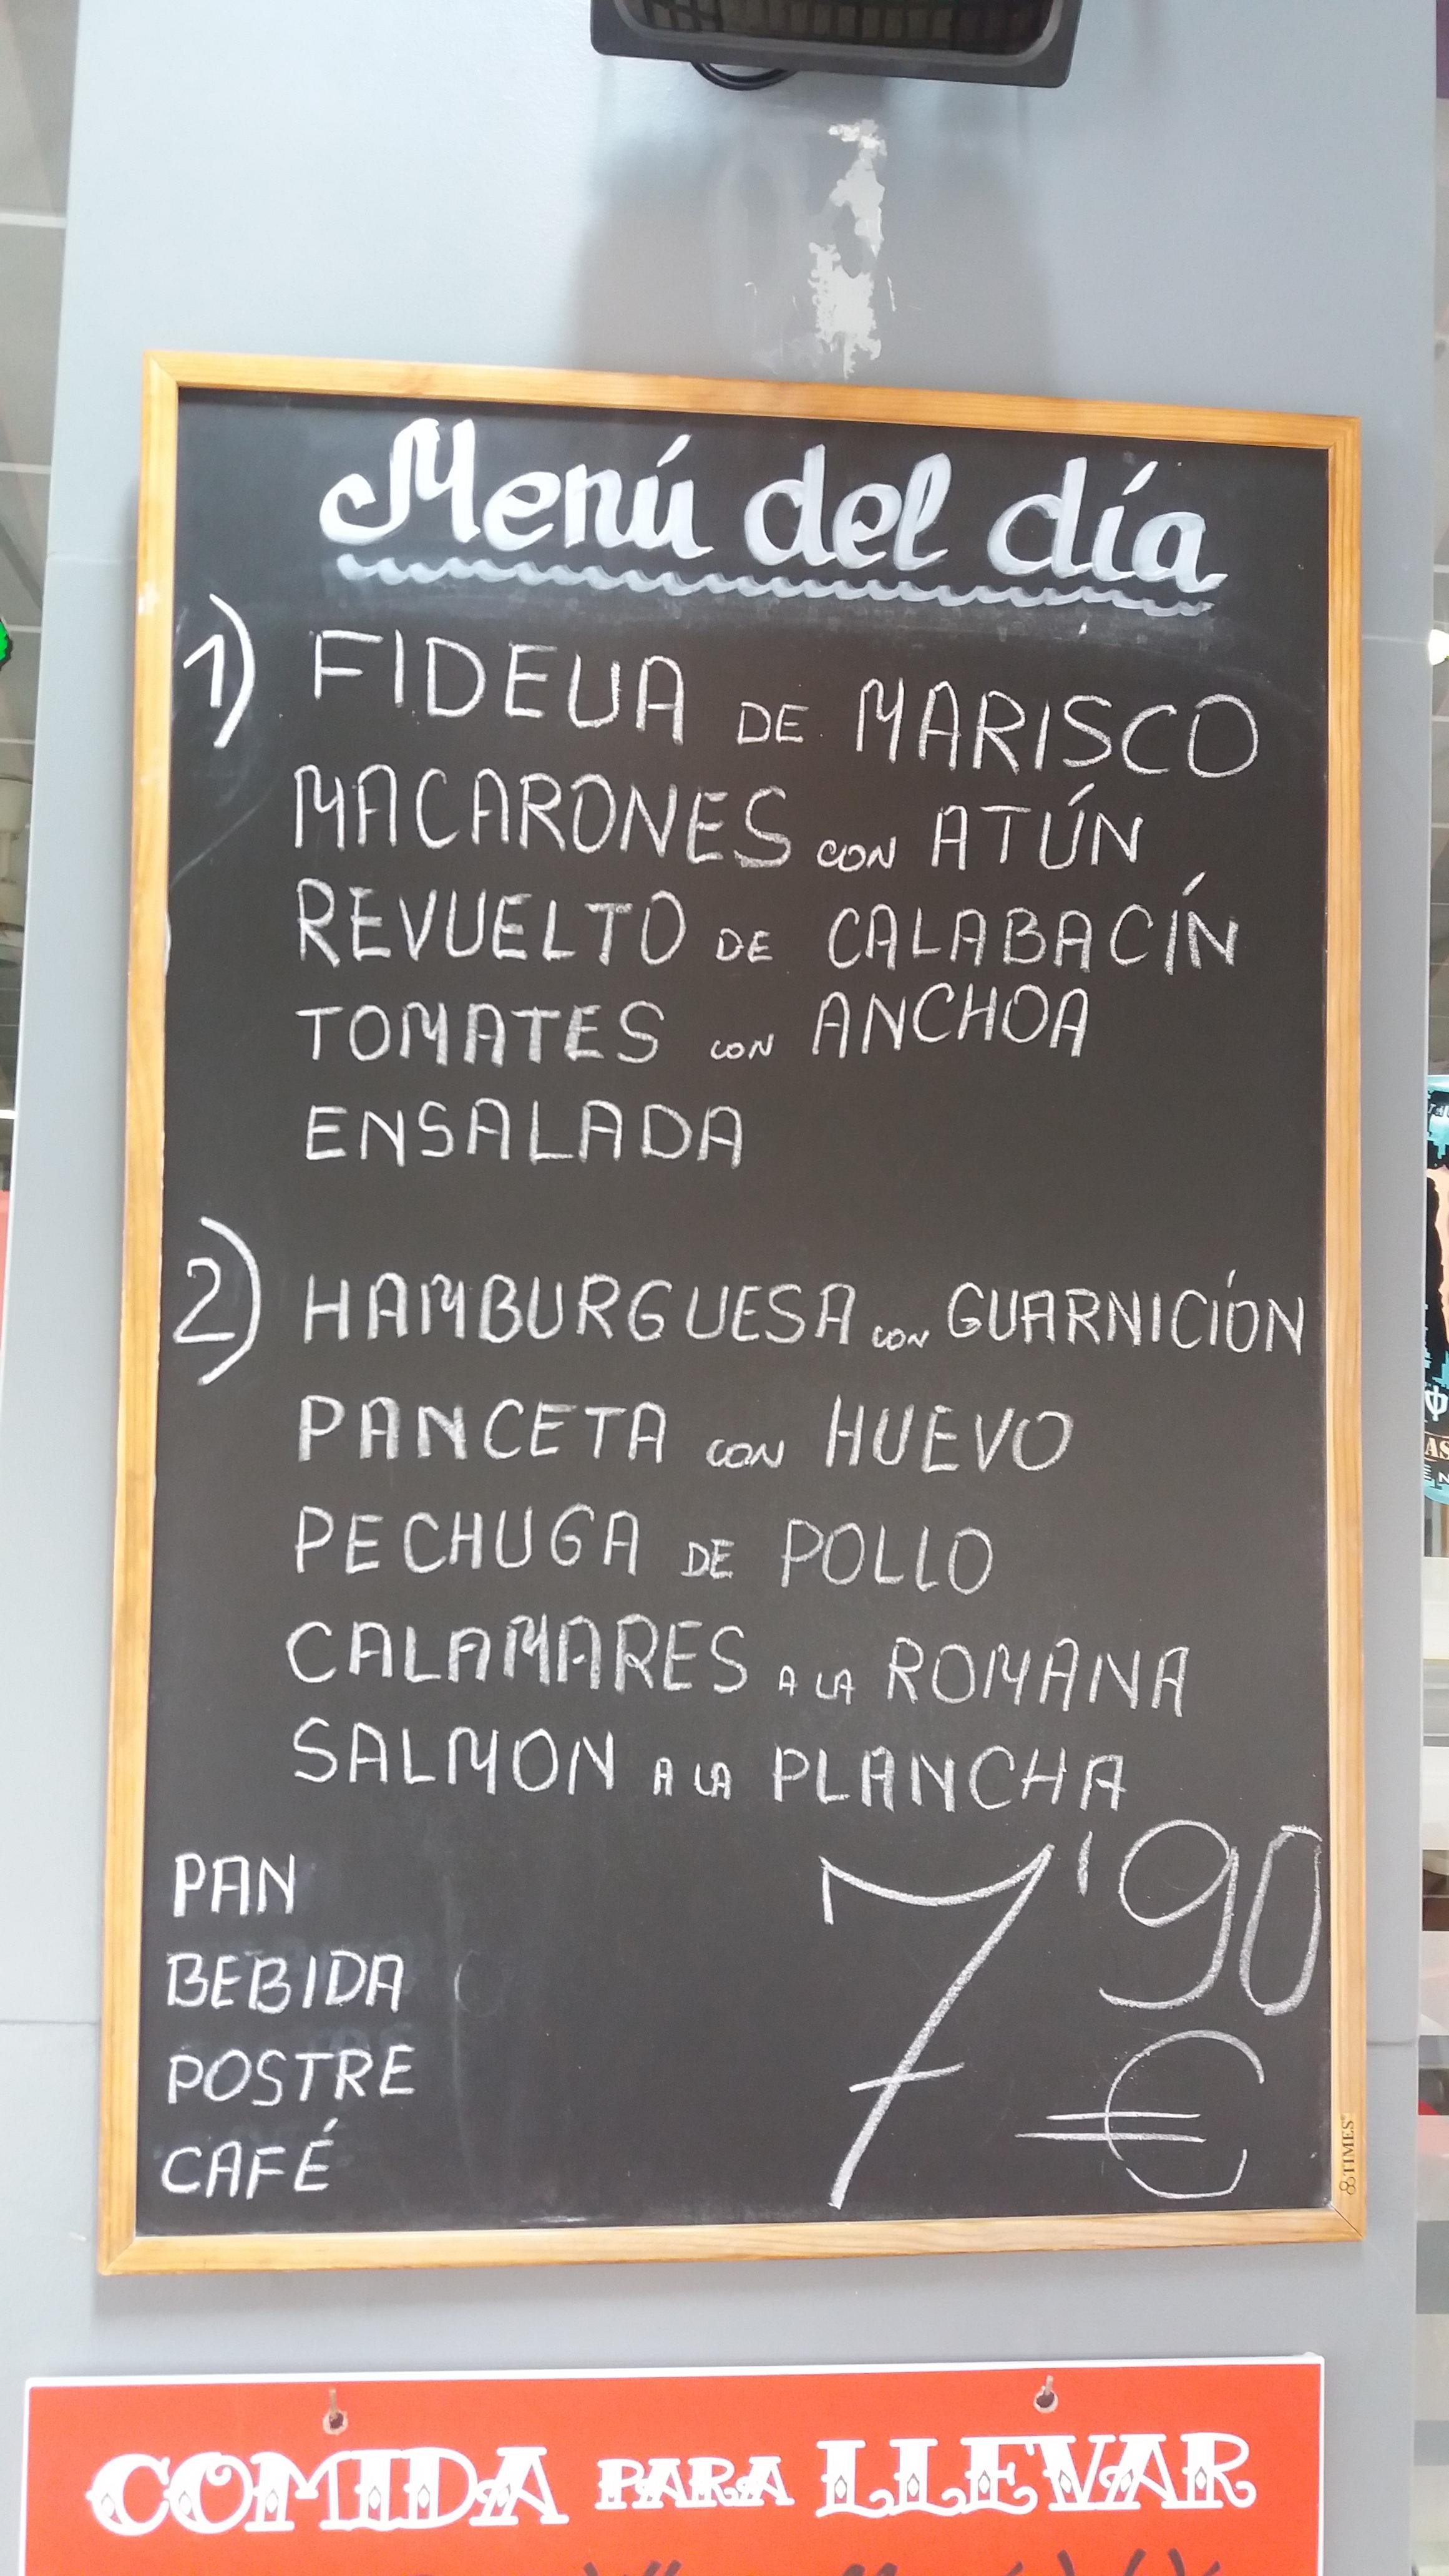 Menú del día
1) FIDEUA DE MARISCO
MACARONES CON ATÚN
REVUELTO DE CALABACÍN
TOMATES CON ANCHOA
ENSALADA
2) HAMBURGUESA CON GUARNICIÓN
PANCETA CON HUEVO
PECHUGA DE POLLO
CALAMARES A LA ROMANA
SALMON A LA PLANCHA
PAN
BEBIDA
POSTRE
CAFÉ
7'90
€
TIMES
COMIDA PARA LLEVAR